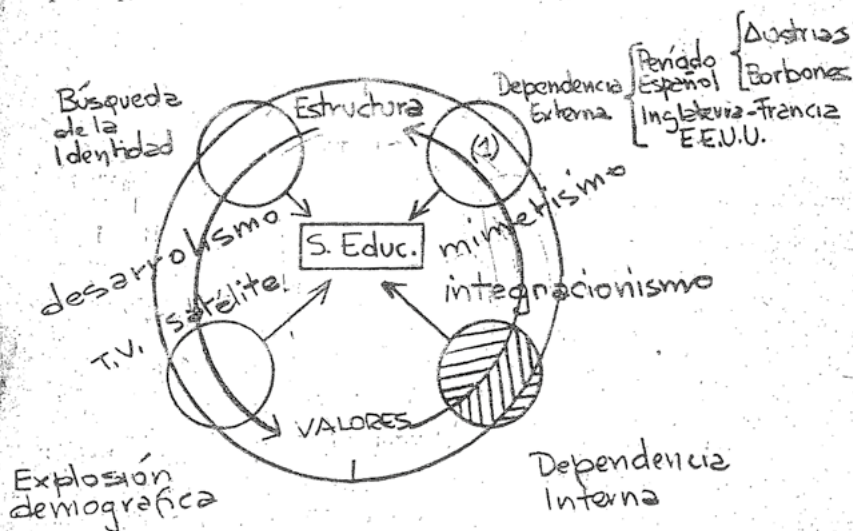 Búsqueda
de la
Identidad
Estructura
Dependencia
Externa
Período
Español
Austrias
Borbones
Inglaterra-Francia
E.E.U.U.
(1)
desarrollismo
S. Educ.
mimetismo
integracionismo
T.V. satélite
VALORES
Explosión
demográfica
Dependencia
Interna